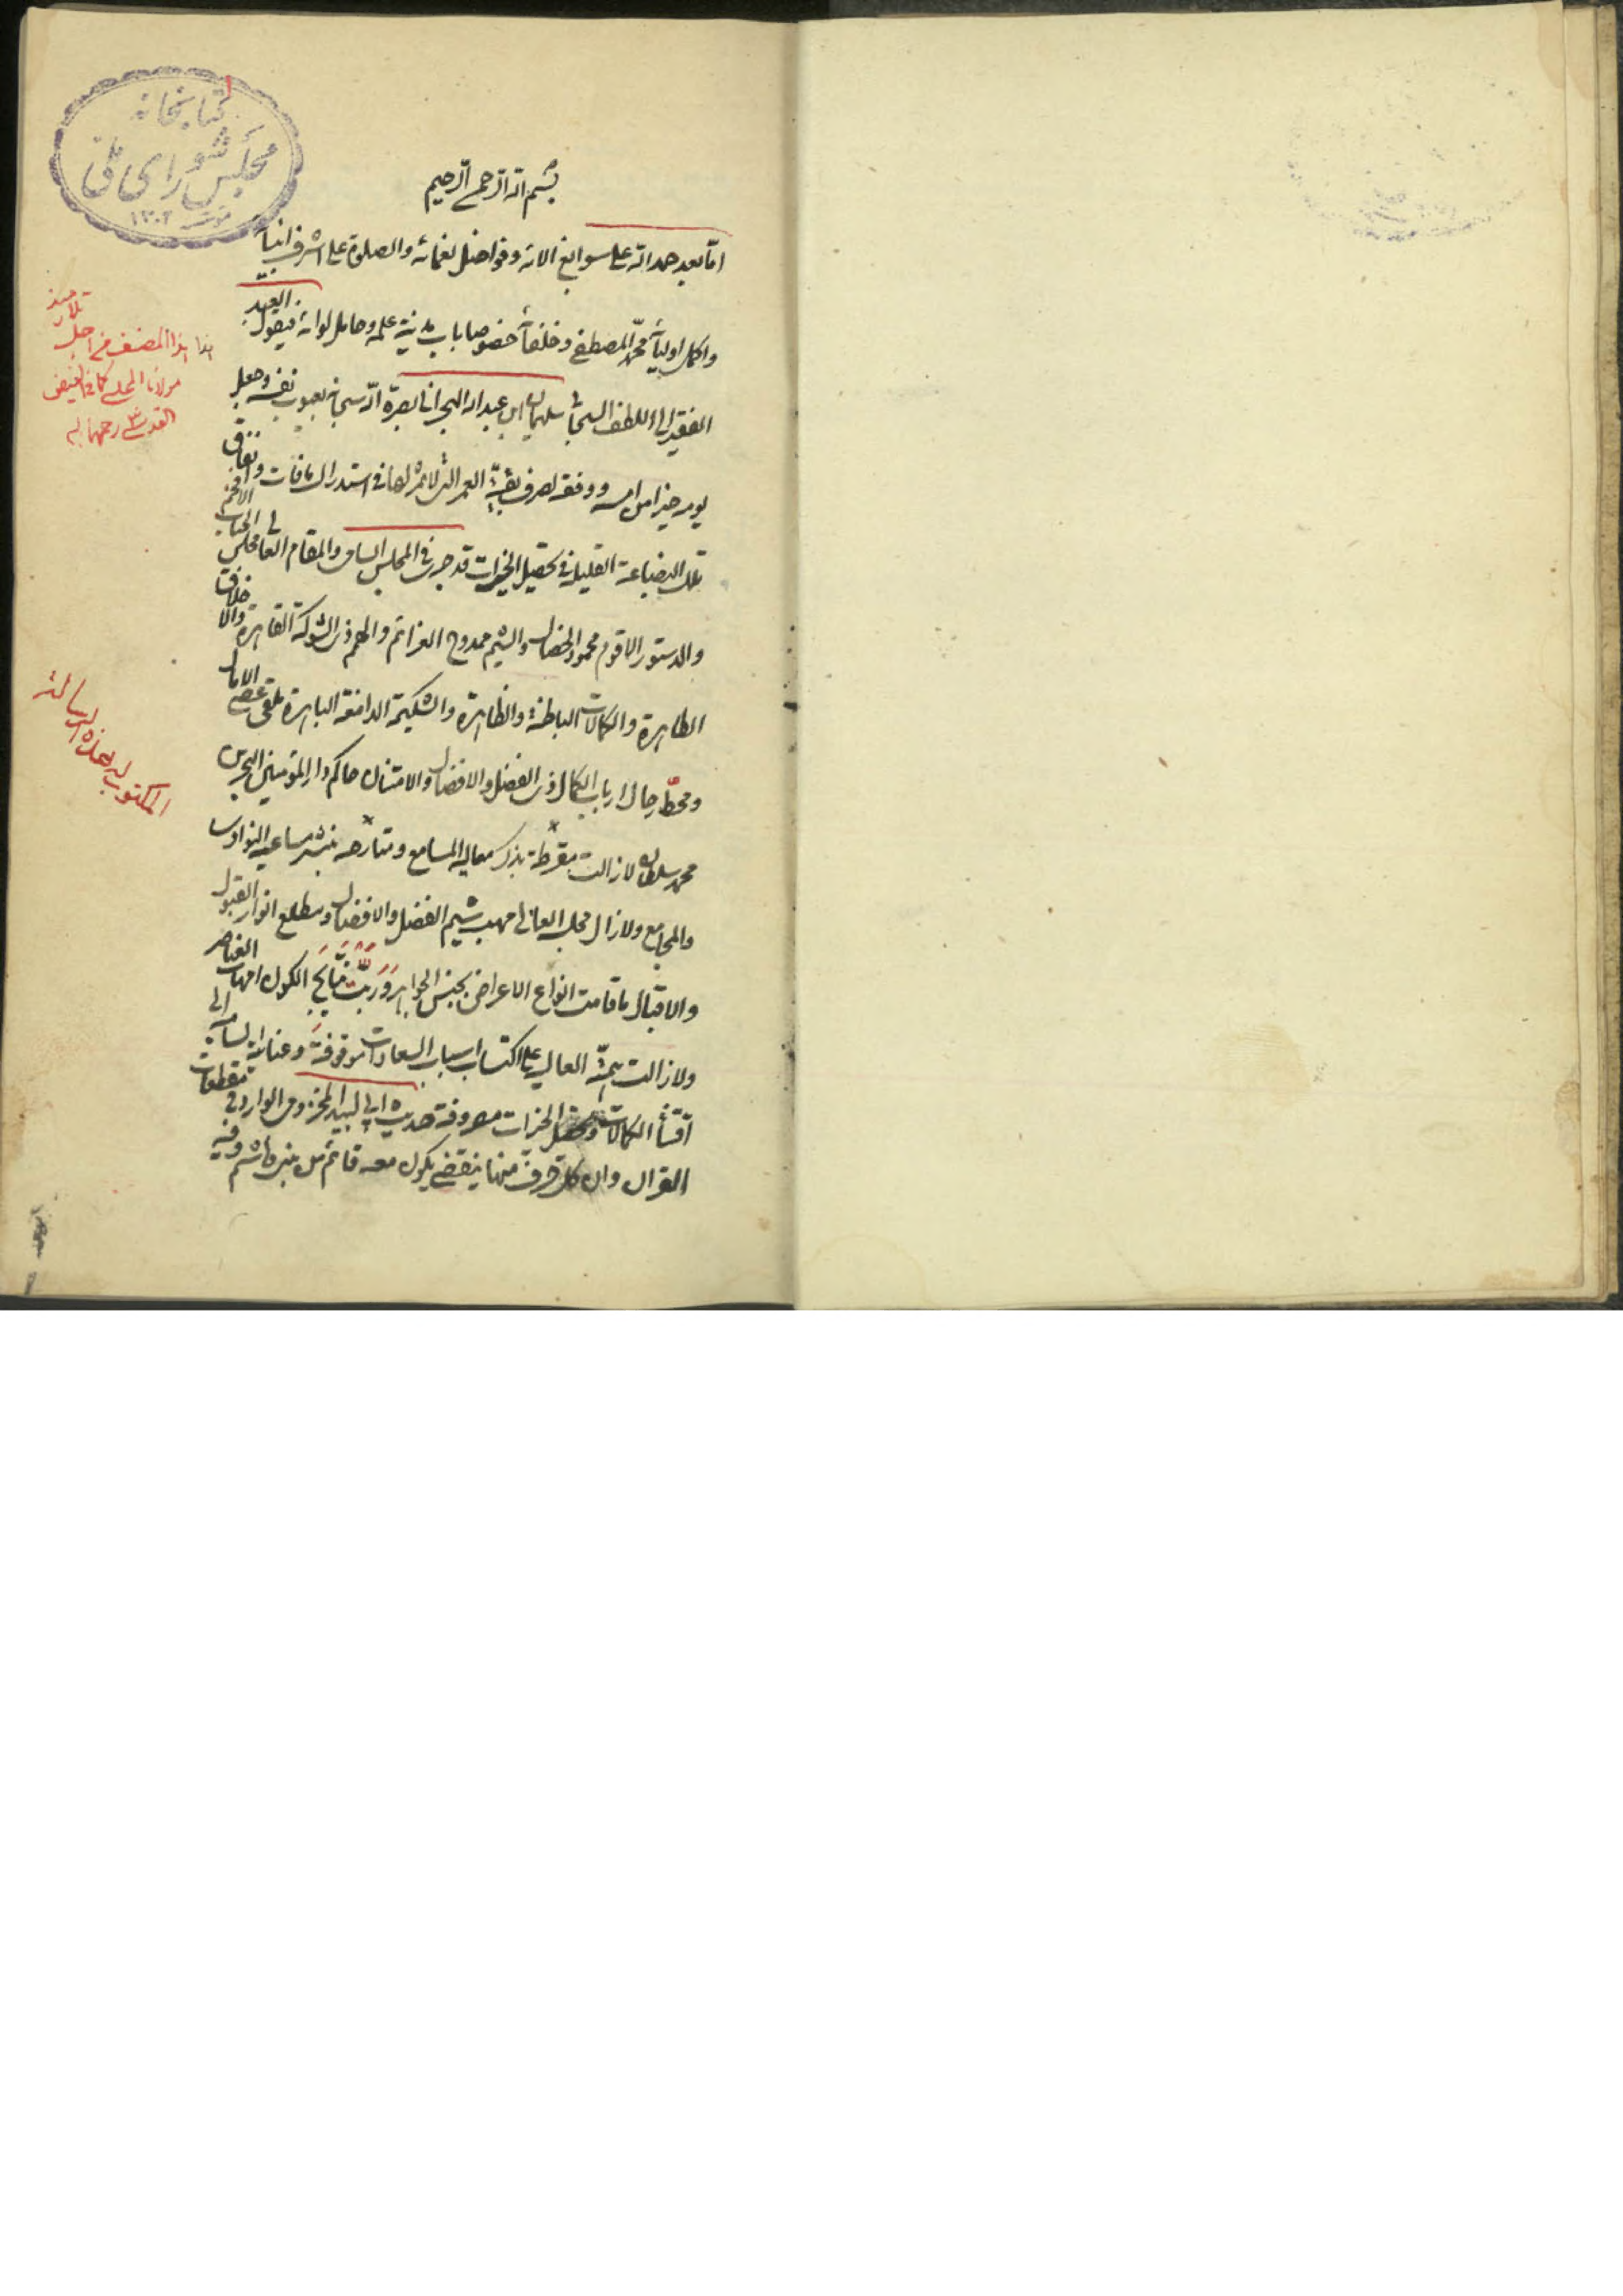 كتابخانه
مجلس شورای ملی
١٣٠٢
بسم الله الرحمن الرحيم
اما بعد حمد الله على سوابغ الائه وفواضل نعمائه والصلوة على اشرف انبيائه
واكمل اوليائه محمد المصطفى وخلفائه خصوصا باب مدينة علمه وحامل لوائه فيقول العبد
الفقير الى اللطف السبحاني سليمان ابن عبد الله البحراني بصره الله سبحانه بعيوب نفسه وجعل
يومه خيرا من امسه ووفقه لصرف بقية العمر التي لا ثمر لها في استدراك ما فات وانفاق
تلك البضاعة القليلة في تحصيل الخيرات قد جرى في المجلس السامي والمقام العالي مجلس الجناب الافخم
والدستور الاقوم محمود الخصال والشيم ممدوح العزائم والهمم ذي الشوكة القاهرة والاخلاق
الطاهرة والكمالات الباطنة والظاهرة والشكيمة الدامغة الباهرة ملقى عصى الامال
ومحط رحال ارباب الكمال ذي الفضل والافضال والامتنان حاكم دار المؤمنين البحرين
محمد سلطان لا زالت مقرطة بذكر معاليه المسامع ومتارجه بنشر مساعيه النوادي
والمجامع ولا زال مجلسه العالي مهب شيم الفضل والافضال ومطلع انوار القبول
والاقبال ما قامت انواع الاعراض بجنس الجواهر وربت نتايج الكون امهات العناصر
ولا زالت همته العالية على اكتساب اسباب السعادات موقوفة وعنايته السامية الى
اقتناء الكمالات وتحصيل الخيرات مصروفة حديث ابي لبيد المخزومي الوارد في مقطعات
القران وان كل حرف منها ينقضي يكون معه قائم من بني هاشم وفيه
هذا المصنف من اجل تلاميذ
مولانا المجلسي كما في الفيض
القدسي رحمهما الله
المكتوب له هذه الرسالة